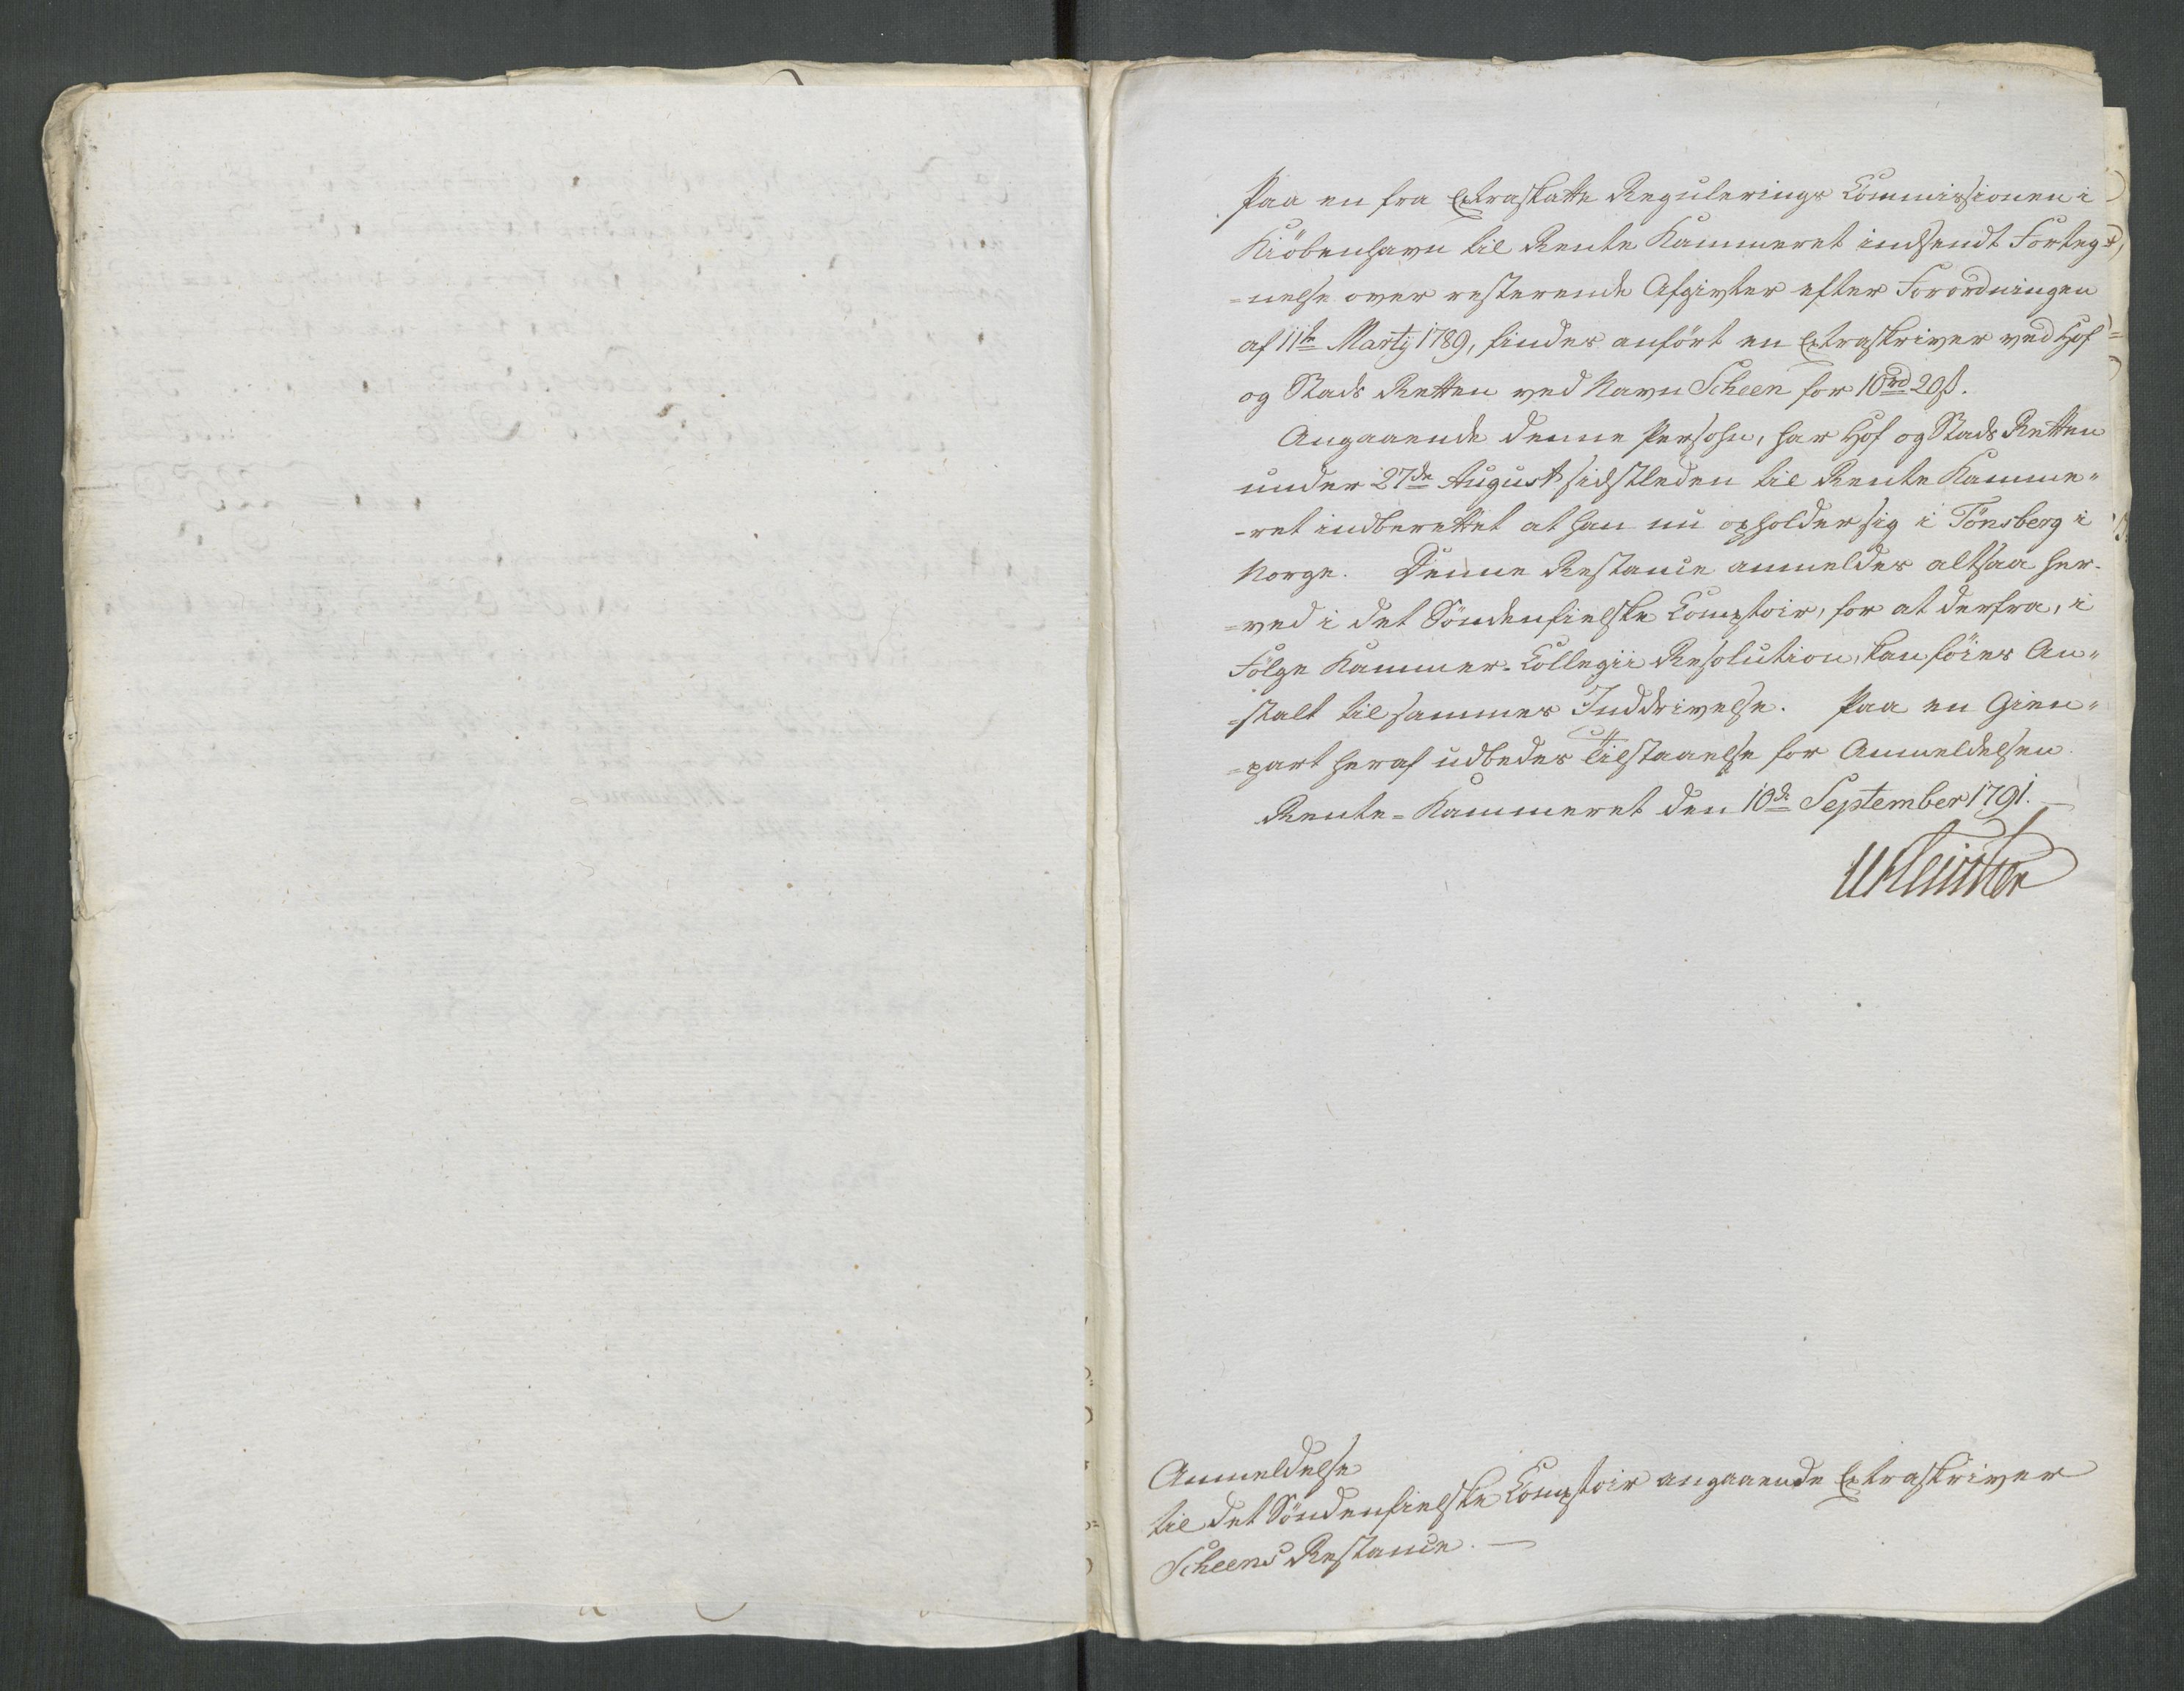 Paa en fra Extraskatte Regulerings Commissionen i
Kiöbenhavn til Rente Kammeret indsendt Forteg=
=nelse over resterende Afgivter efter Forordningen
af 11te Martij 1789, findes anfört en Extraskriver ved Hof=
og Stads Retten ved Navn Scheen for 10rd 20ß.
Angaaende denne Persohn, har Hof og Stads Retten
under 27de August sidstleden til Rente Kamme=
-ret indberettet at han nu opholder sig i Tönsberg i
Norge. Denne Restance anmeldes altsaa her-
=ved i det Söndenfielske Comptoir, for at derfra, i
Fölge Kammer-Collegii Resolution, kan föies An=
=stalt til sammes Inddrivelse. Paa en Gien=
=part heraf udbedes Tilstaaelse for Anmeldelsen
Rente=Kammeret den 10de September 1791.
Anmeldelse
til det Söndenfielske Comptoir angaaende Extraskriver
Scheens Restance.